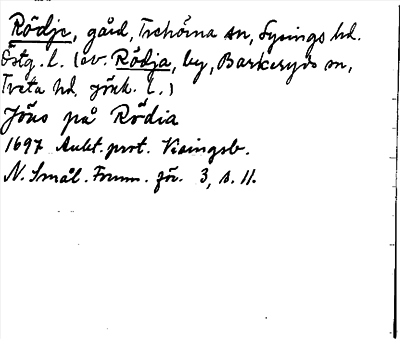 Rödje, gård, Trehörna sn, Lysings hd.
Östg. l. (av. Rödja, by, Barkeryds sn,
Tveta hd, Jönk. l.)
Jöns på Rödia
1697 Aukt. prot. Visingsb.
N. Smål. Fornm. för. 3, s. 11.